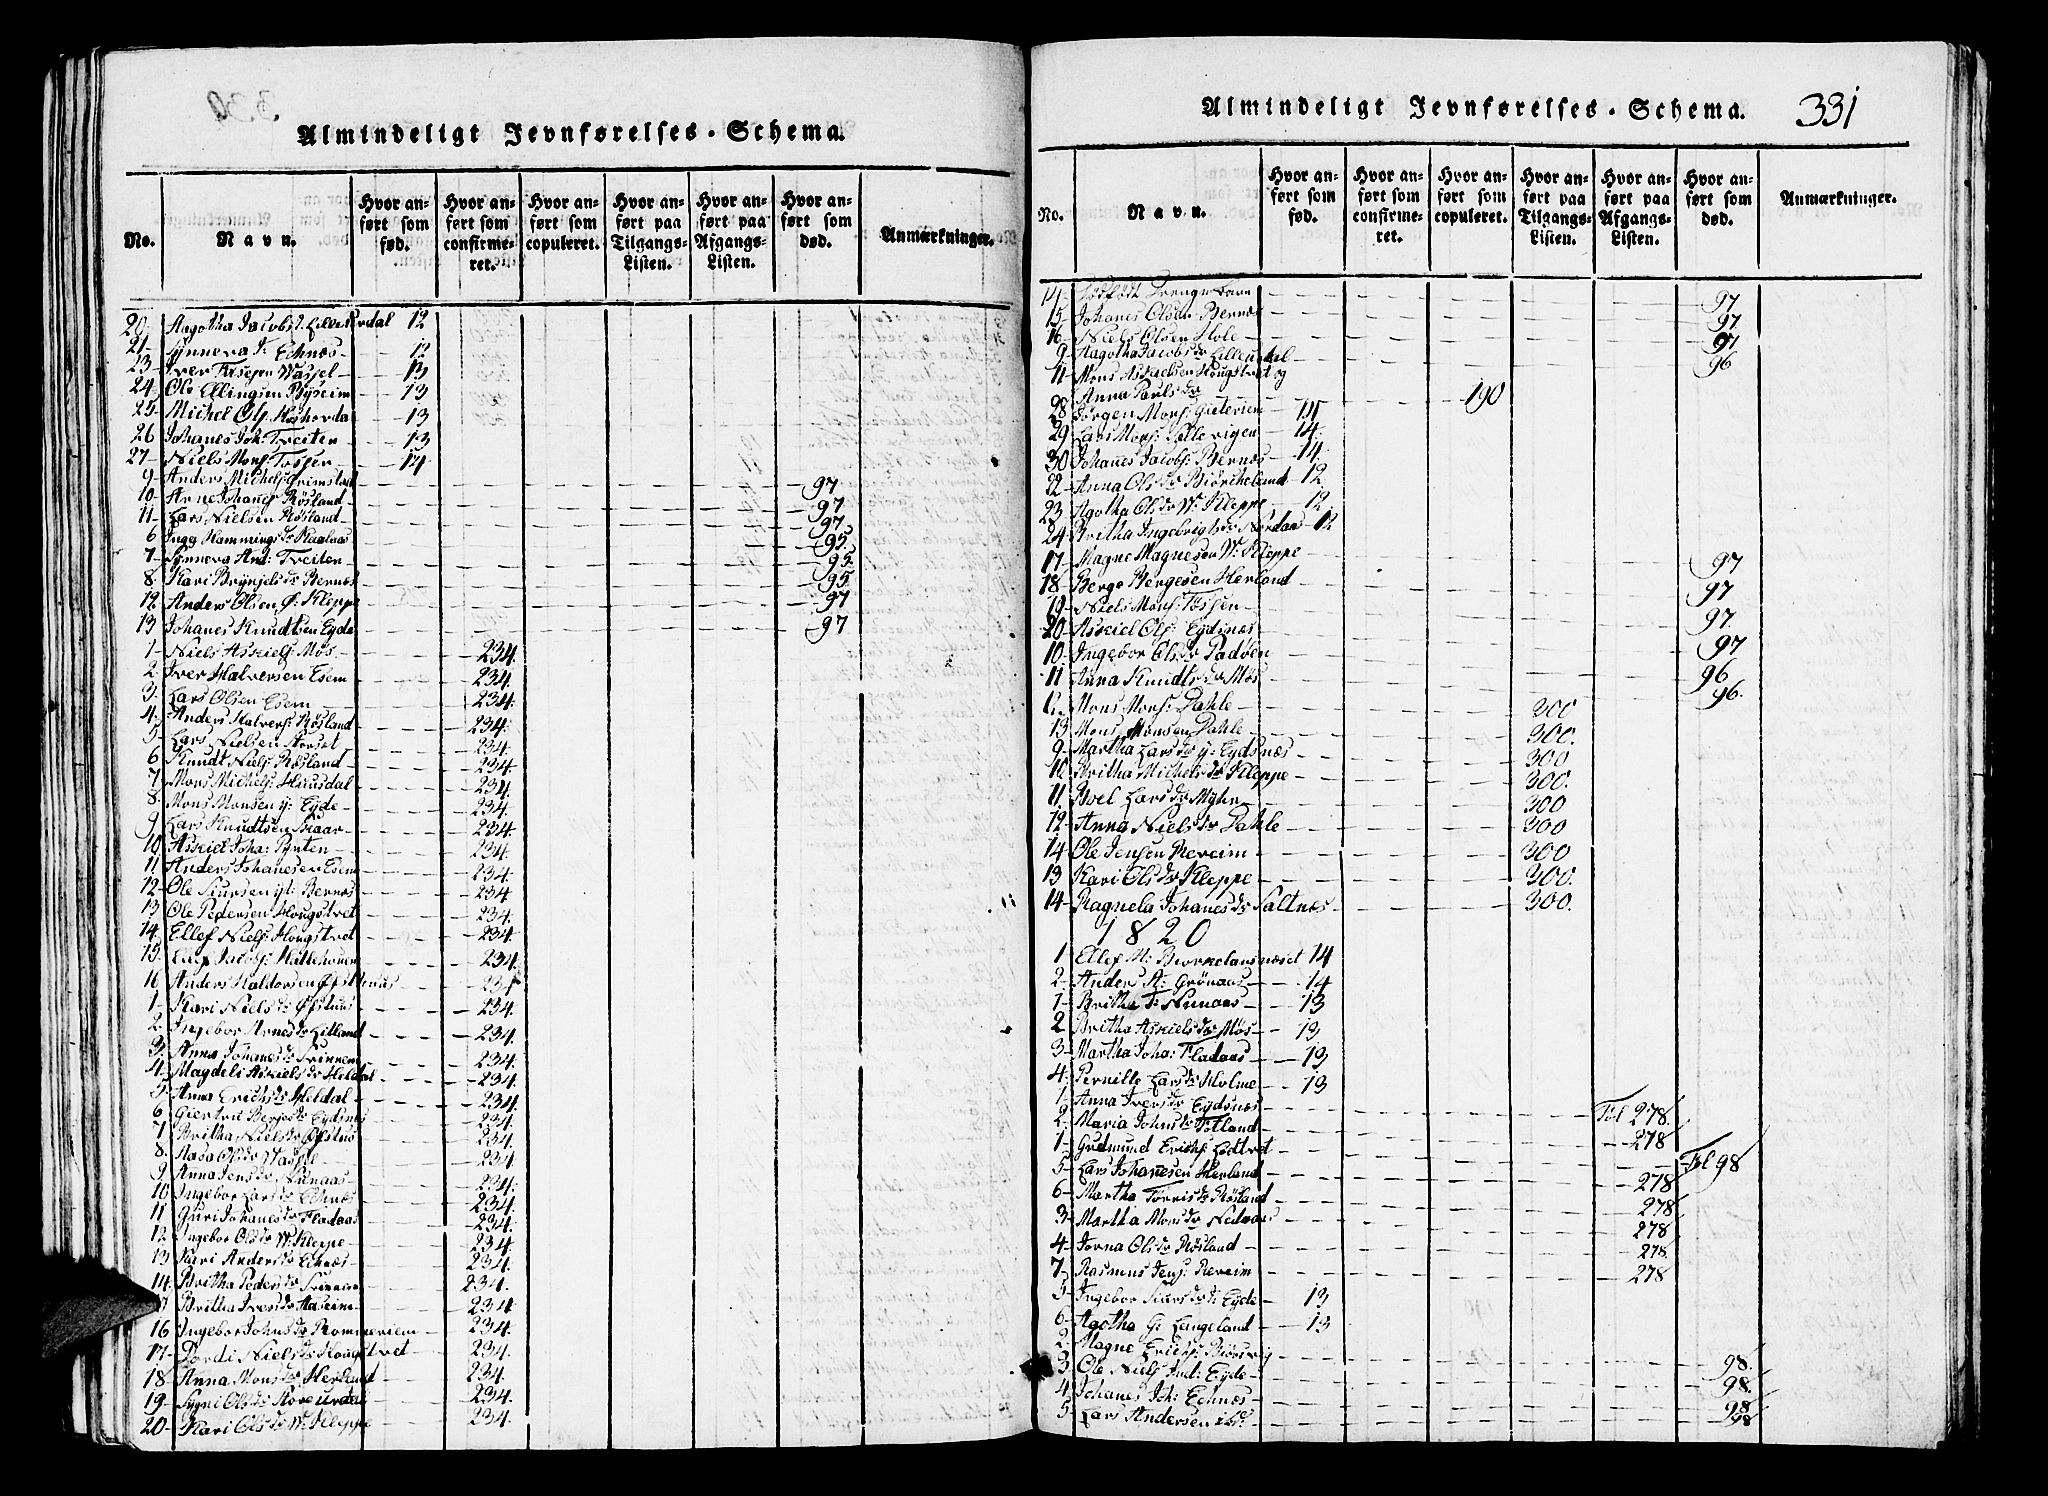 Almindeligt Jevnførelses-Schema.
No.
Navn.
Hvor anført som fød.
Hvor anført som confirmeret.
Hvor anført som copuleret.
Hvor anført paa Tilgangs-Listen.
Hvor anført paa Afgangs-Listen.
Hvor anført som død.
Anmærkninger.
20 Aagotha Jacobsd. Lillesdal 12
21 Synneva J: Echnæs 12
23 Iver 13
24 Ole Ellingsen Røseim 13
25 Michel Ols: 13
26 Johanes Joh: Treiten 13
27 Niels Mons: Tossen 14
9 Anders Michels: Grimstvet 97
10 Arne Johanes: Røsland 97
11 Lars Nielsen Røsland 97
6 Inga Hammings dr 95
7 Synneva And: Treiten 95
8 Kari Brynjels dr Bernæs 95
12 Anders Olsen Ø: Kleppe 97
13 Johanes Knudtsen Eyde 97
1 Niels Askiels: Møs 234.
2 Iver Halversen Esem 234.
3 Lars Olsen Esem 234.
4 Anders Halvers: Røsland 234.
5 Lars Nielsen 234.
6 Knudt Niels: Røsland 234.
7 Mons Michels: Huusdal 234.
8 Mons Monsen y: Eyde 234.
9 Lars Knudtsen Skaar 234.
10 Askiel Joha: Pynten 234.
11 Anders Johanesen Esem 234.
12 Ole Siursen yt: Bernæs 234
13 Ole Pedersen Hougstvet 234.
14 Ellef Niels: Hougstvet 234.
15 Jacobs: 234.
16 Anders Haldorsen Øfsthuus 234
1 Kari Niels dr Øfsthus 234.
2 Ingebor Arnes dr Litland 234.
3 Anna Johanes dr Svinnem 234.
4 Magdeli Askiels dr Heldal 234.
5 Anna Erichs dr Heldal 234.
6 Giertru Berges dr Eydsnes 234.
7 Britha Niels dr Øfsthus 234.
8 Aasa Ols dr 234.
9 Anna Jens dr Nunaas 234.
10 Ingebor Lars dr Echnæs 234.
11 Guri Johanes dr Fladaas 234.
12 Ingebor Ols dr W: Kleppe 234.
13 Kari Anders dr Echnæs 234.
14 Britha Peders dr Svinnem 234.
Britha Ivers dr 234.
16 Ingebor Johns dr Rommeriem 234.
17 Niels dr Hougstvet 234.
18 Anna Mons dr Herland 234
19 Sygni Ols dr 234.
20 Kari Ols dr W: Kleppe 234.
Almindeligt Jevnførelses-Schema.
331
No.
Navn.
Hvor anført som fød.
Hvor anført som confirmeret.
Hvor anført som copuleret.
Hvor anført paa Tilgangs-Listen.
Hvor anført paa Afgangs-Listen.
Hvor anført som død.
Anmærkninger.
14 Dødfødt Drenge Barn 97
15 Johanes Olsen Bernæs 97
16 Niels Olsen Hole 97
9 Aagotha Jacobs dr Lillesdal 96
11 Mons Askielsen Hougstvet og
Anna Pauls dr 190
28 Jørgen Mons: 14
29 Lars Mons: 14.
30 Johanes Jacobs: Bernæs 14.
22 Anna Ols dr Biörcheland 12.
23 Agotha Ols dr W: Kleppe 12
24 Britha Ingebrigts dr Nordaas 12
17 Magne Magnesen W: Kleppe 97
18 Berge Bergesen Herland 97
19 Niels Mons: Tossen 97
20 Askiel Ols: Eydsnæs 97
10 Ingebor Ols dr Padøen 96
11 Anna Knudts dr Møs 96.
12 Mons Mons: Dahle 300
13 Mons Monsen Dahle 300.
9 Martha Lars dr y: Eydsnæs 300
10 Britha Michels dr Kleppe 300.
11 Boel Lars dr Myhr 300
12 Anna Niels dr Dahle 300
14 Ole Jensen Rereim 300
13 Kari Ols dr Kleppe 300.
14 Ragnela Johanes dr Saltnæs 300.
1820
1 Ellef M: Biorkelansnæset 14
2 Anders A: Grönaas 14
1 Britha T: Nunaas 13
2 Britha Askiels dr Møs 13
3 Martha Joha: Fladaas 13
4 Pernille Lars dr Holme 13
1 Anna Ivers dr Eydsnæs Fol 278.
2 Maria Johns dr Totland 278
1 Gudmund Erichs: Lodtvet Fol 98
5 Lars Johanesen Herland 278
6 Martha Torris dr Røsland 278
3 Martha Mons dr 278
4 Jorna Ols dr Røsland 278.
7 Rasmus Jens: Rereim 278
5 Ingebor Siurs dr i: Eyde 13
6 Agotha G: Langeland 13
2 Magne Erichs: Biörsvig 98.
3 Ole Niels: Ind: Eyde 98.
4 Johanes Joh: Echnæs 98
5 Lars Andersen ibd: 98